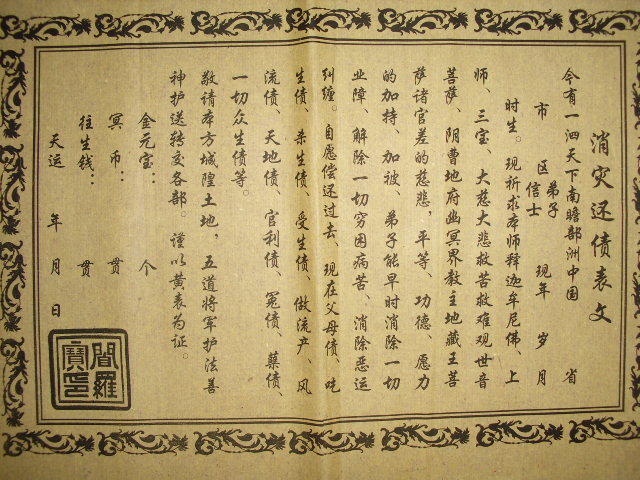 消灾还债表文
今有一四天下南瞻部洲中国 省
市 区 弟子 信士 现年 岁 月
时生。现祈求本师释迦牟尼佛、上
师、三宝、大慈大悲救苦救难观世音
菩萨、阴曹地府幽冥界教主地藏王菩
萨诸官差的慈悲，平等、功德、愿力
的加持、加被、弟子能早时消除一切
业障、解除一切穷困病苦、消除恶运
纠缠。自愿偿还过去、现在父母债、吃
生债、杀生债、受生债、做流产、风
流债、天地债、官利债、冤债、药债、
一切众生债等。
敬请本方城隍土地、五道将军护法善
神护送转交各部。谨以黄表为证。
金元宝： 个
冥币： 贯
往生钱： 贯
天运 年 月 日
阎罗宝印